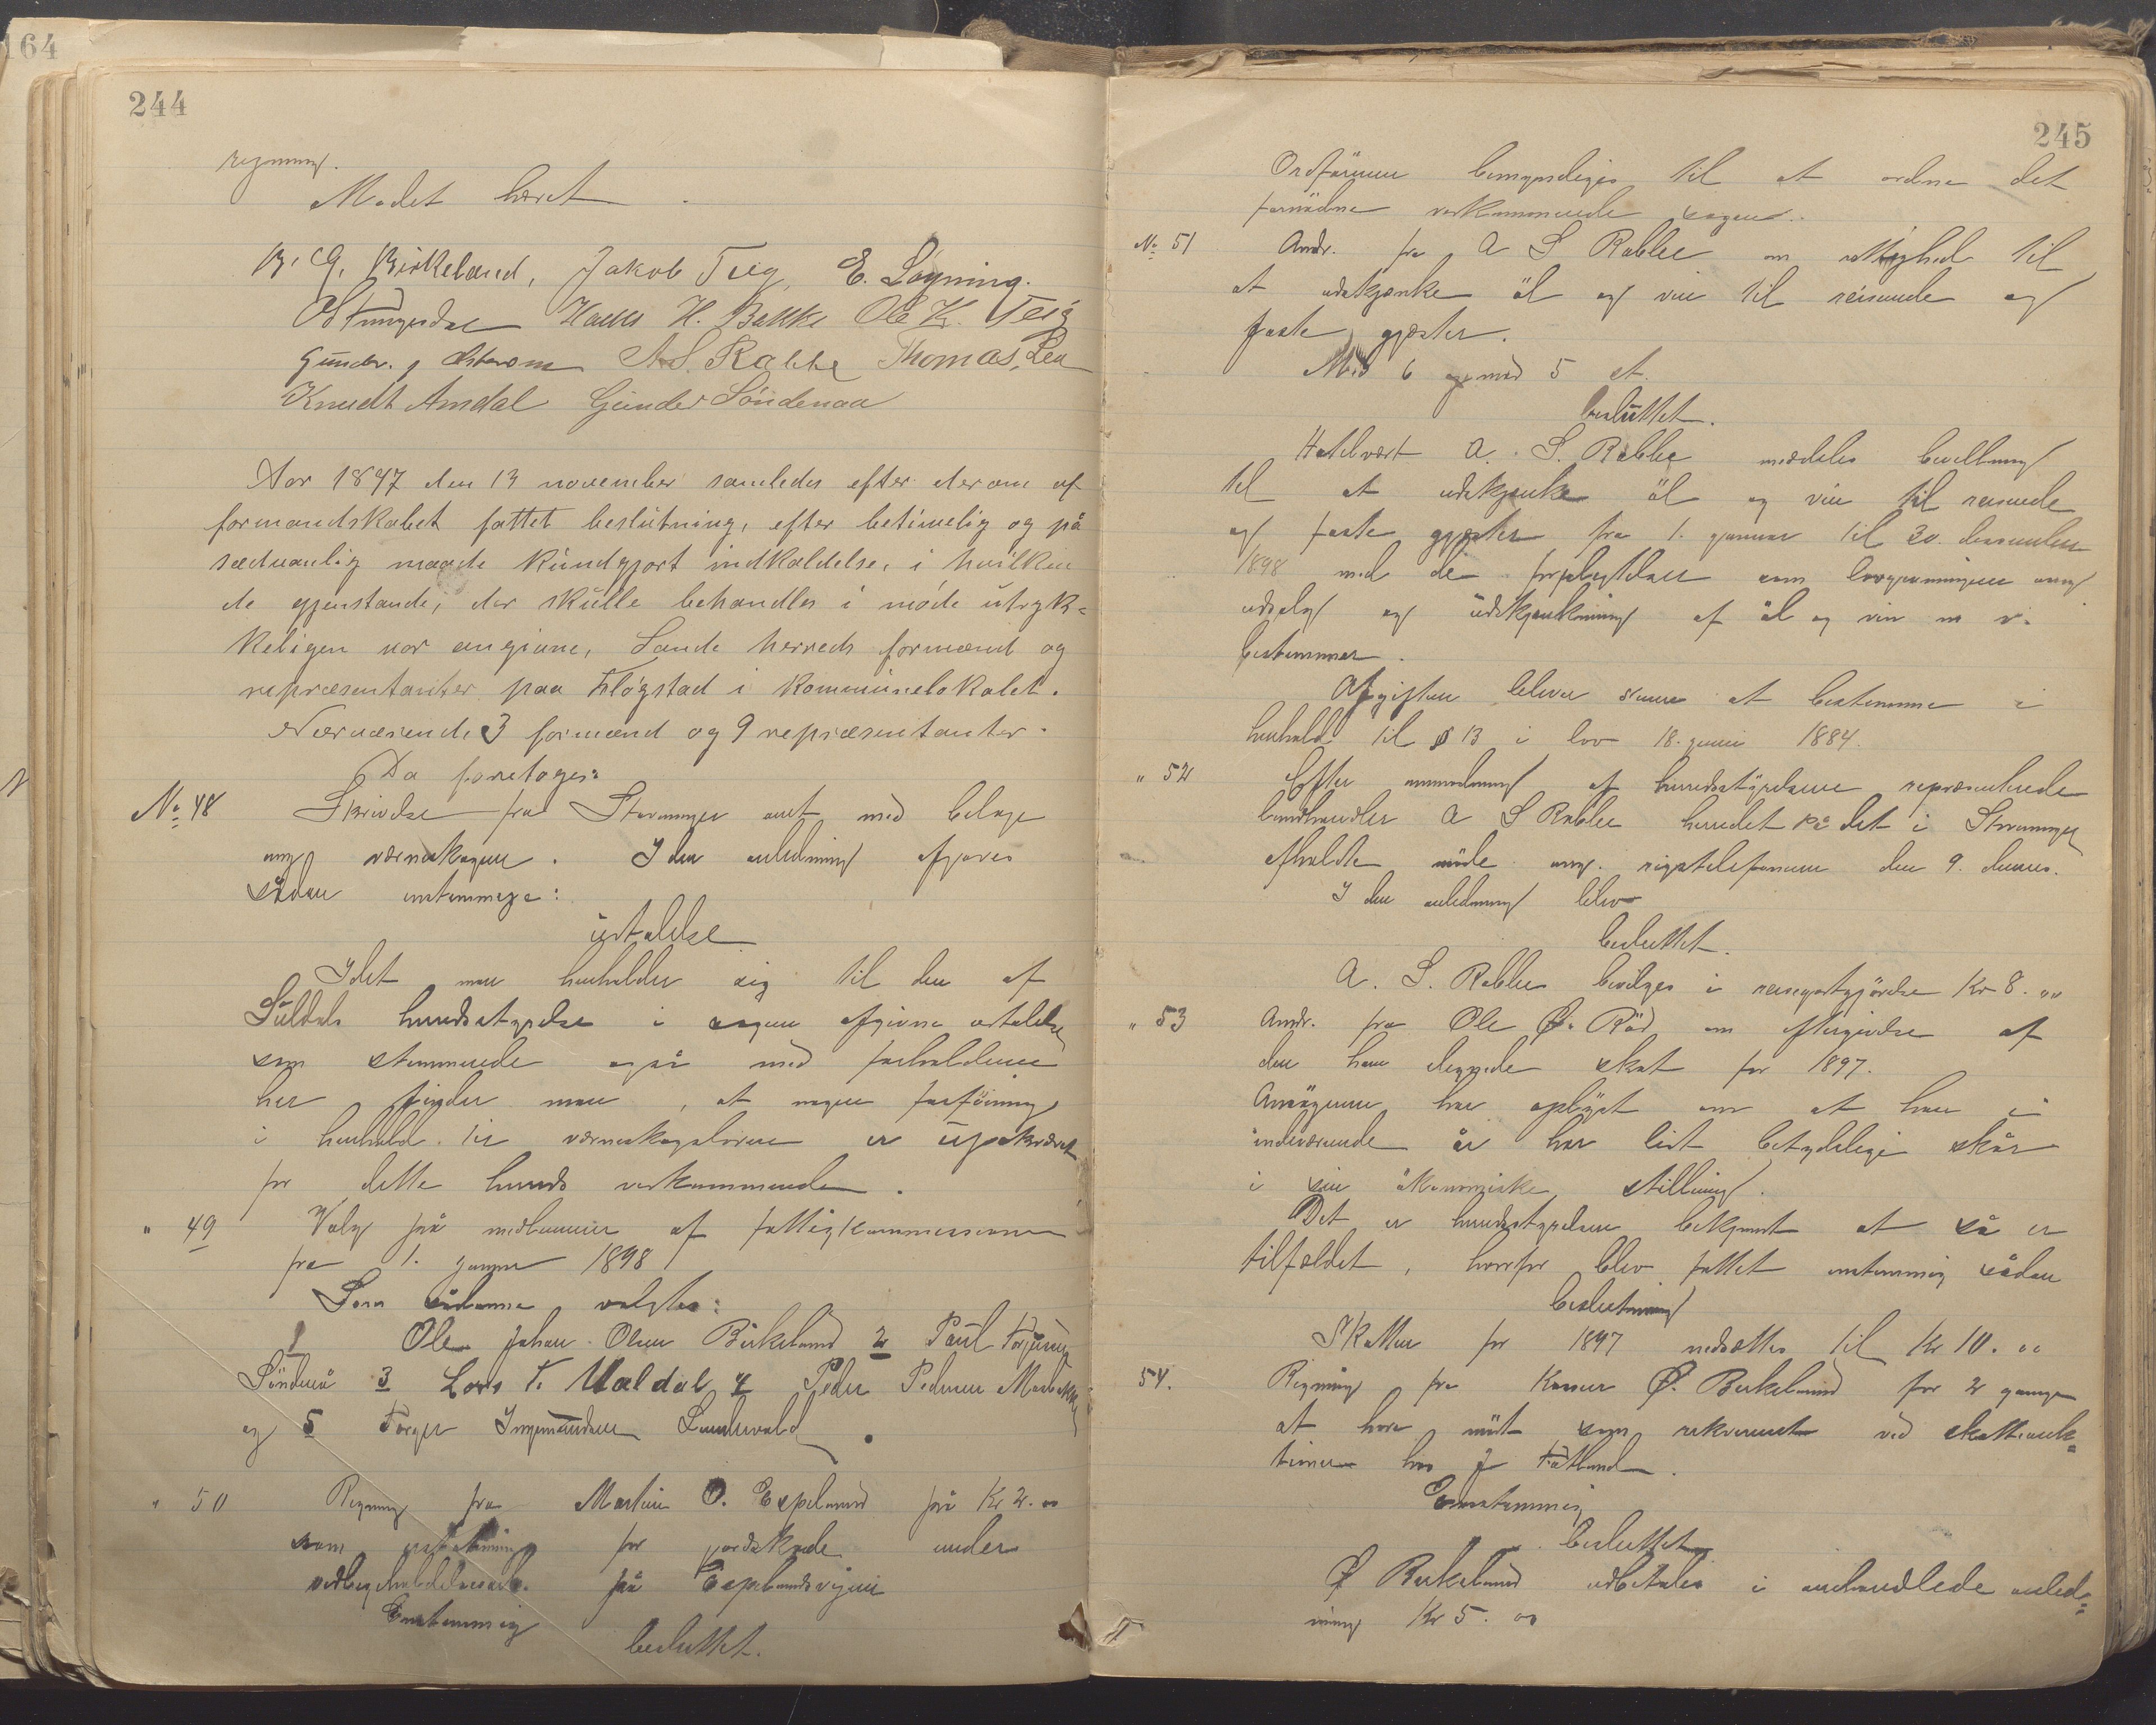 164
244
regning.
Mødet hævet.
B. G. Birkeland, Jakob Teig, E. Løyning.
Hans H. Bakke Ole K. Teig
Gunder. J A. S. Rabbe Thomas. Lea
Knudt Amdal Gunder Söndenaa
Aar 1897 den 13 november samledes efter derom af
formandskabet fattet beslutning, efter betimelig og på
sædvanlig maade kundgjort indkaldelse, i hvilken
de gjenstande, der skulle behandles i møde utryk-
keligen var angivne, Sande herreds formænd og
repræsentanter paa Fløgstad i kommunelokalet.
Nærværende 3 formænd og 9 repræsentanter.
Da foretoges:
No 48 Skrivelse fra Stavanger amt med bilage
ang værneskogen. I den anledning afgaves
sådan enstemmige:
udtalelse
Idet man henholder sig til den af
Suldals herredsstyrelse i sagen afgivne udtalelse
som stemmende også med forholdene
her finder man, at nogen forföining
i henhold til værneskogsloven er upåkrævet
for dette herreds vedkommende.
" 49 Valg på medlemmer af fattigkommissionen
fra 1. januar 1898
Som sådanne valgtes:
1 Ole Johan Olsen Birkeland 2 Paul
Söndenå 3 Lars T. Valdal 4 Peder Pedersen
og 5 Torger
" 50 Regning fra Martin O. Espeland på Kr 2.00
som erstatning for jordskade under
vedligeholdelsesarb. på Espelandsveien
Enstemmig
besluttet.
245
Ordføreren bemyndiges til at ordne det
fornødne vedkommende sagen.
No 51 Andr. fra A S Rabbe om rettighed til
at udskjænke öl og vin til reisende og
faste gjæster.
Med 6 mod 5 st.
besluttet.
Hotelvært A. S. Rabbe meddeles bevilling
til at udskjænke öl og vin til reisende
og faste gjæster fra 1. januar til 30. desember
1898 med de forpligtelser som lovgivningen ang
udsalg og udskjænkning af öl og vin m v.
bestemmer.
Afgiften bliver senere at bestemme i
henhold til § 13 i lov 18. juni 1884.
" 52 Efter anmodning af herredsstyrelsen repræsenterede
landhandler A S Rabbe herredet på det i Stavanger
afholdte möde ang. rigstelefonen den 9. dennes.
I den anledning blev
besluttet.
A. S. Rabbe bevilges i reisegodtgjörelse Kr 8.00
" 53 Andr. fra Ole Ø. Röd om eftergivelse af
den ham ilignede skat for 1897.
Ansögeren har oplyst om at han i
indeværende år har lidt betydelige skår
i sin ökonomiske stilling.
Det er herredsstyrelsen bekjendt at så er
tilfældet, hvorfor blev fattet enstemmig sådan
beslutning
Skatten for 1897 nedsættes til Kr 10.00
54. Regning fra Ø. Birkeland for 2 gange
at have mödt som rekvirent ved skatteauk-
tioner hos J
Enstemmig
besluttet
Ø Birkeland udbetales i omhandlede anled-
ning Kr 5.00